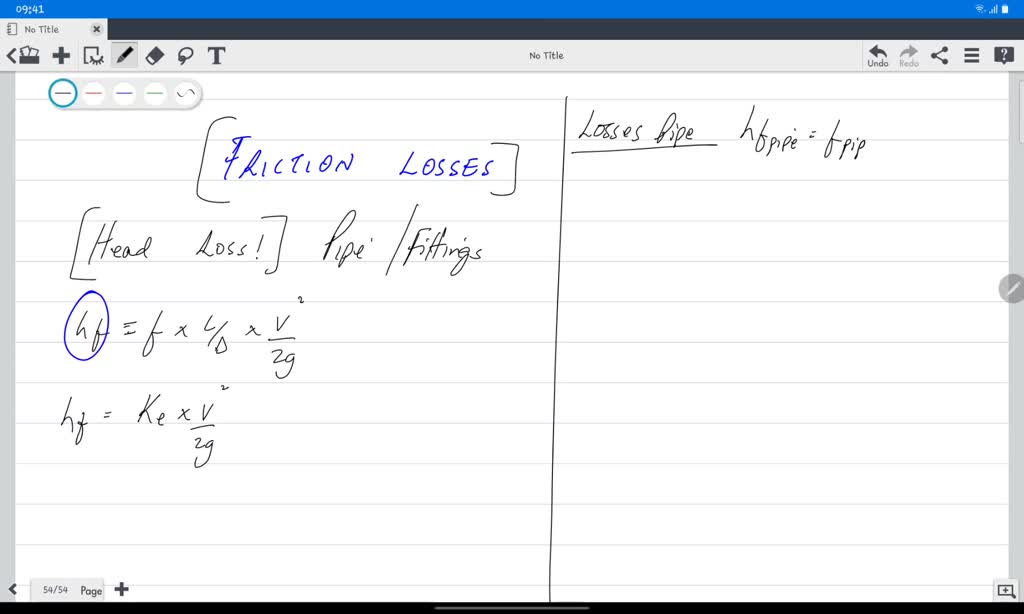 09:41
No Title
No Title
Undo
Redo
T
[FRICTION LOSSES]
[Head Loss!] Pipe / Fittings
hf = f × L/D × V²/2g
hf = Ke × V²/2g
Losses Pipe hfpipe = fpip
54/54 Page